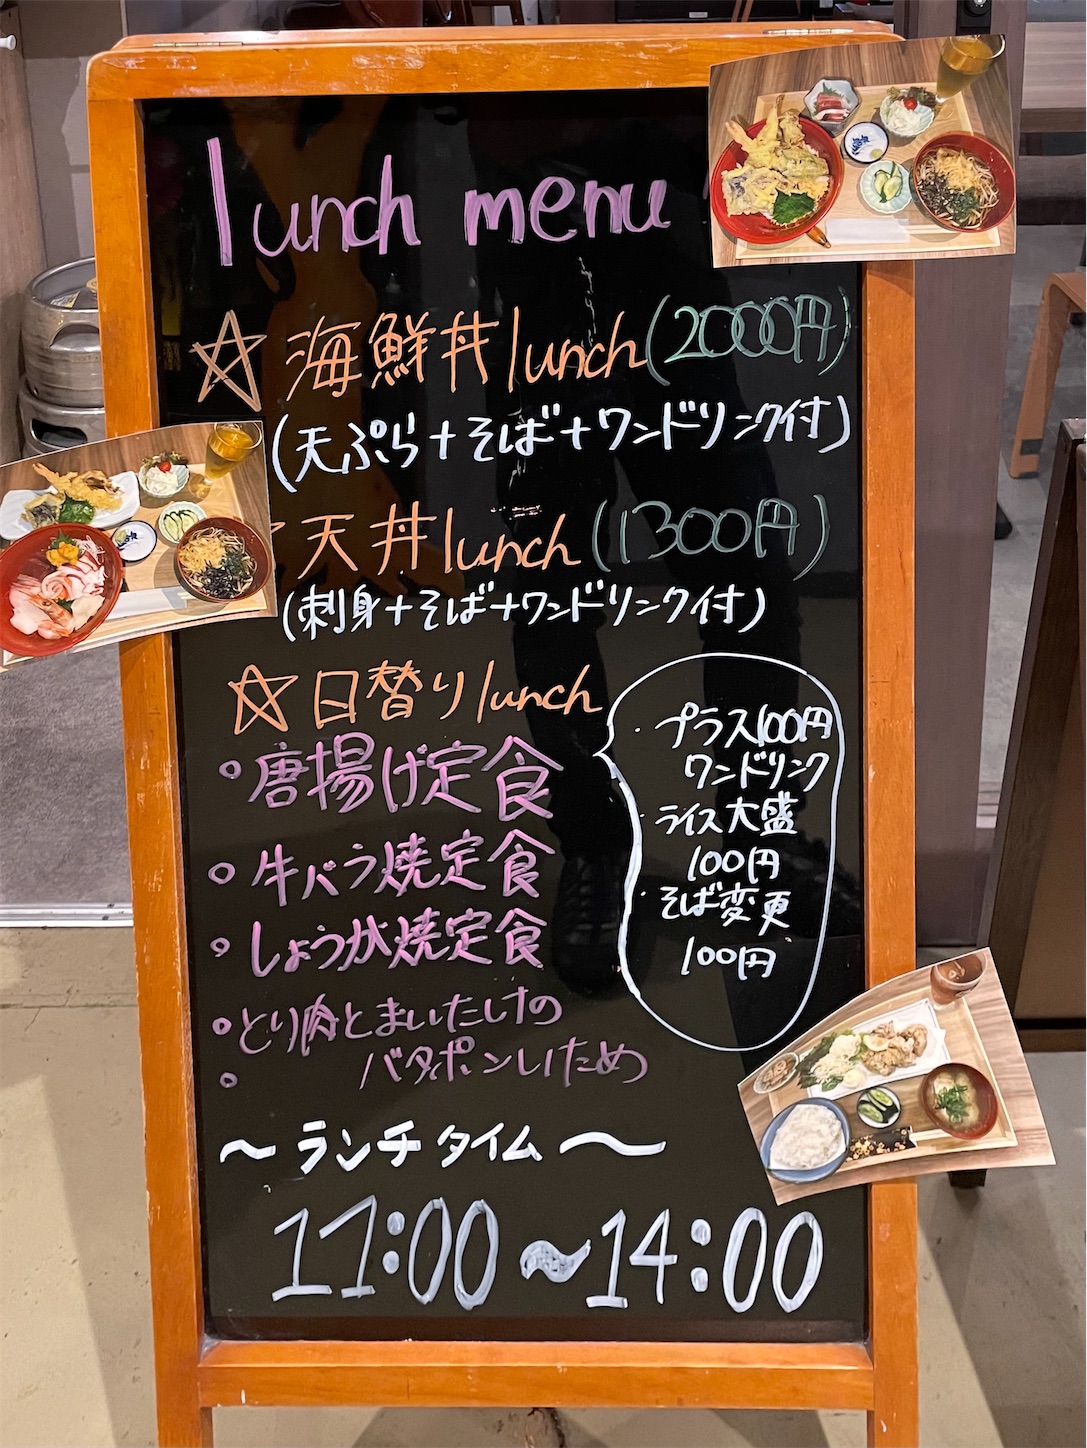 lunch menu
☆海鮮丼lunch(2000円)
(天ぷら+そば+ワンドリンク付)
天丼lunch(1300円)
(刺身+そば+ワンドリンク付)
☆日替りlunch
・プラス100円
ワンドリンク
・ライス大盛
100円
・そば変更
100円
○唐揚げ定食
○牛バラ焼定食
○しょうが焼定食
○とり肉とまいたけの
○バタポンいため
~ランチタイム~
11:00~14:00